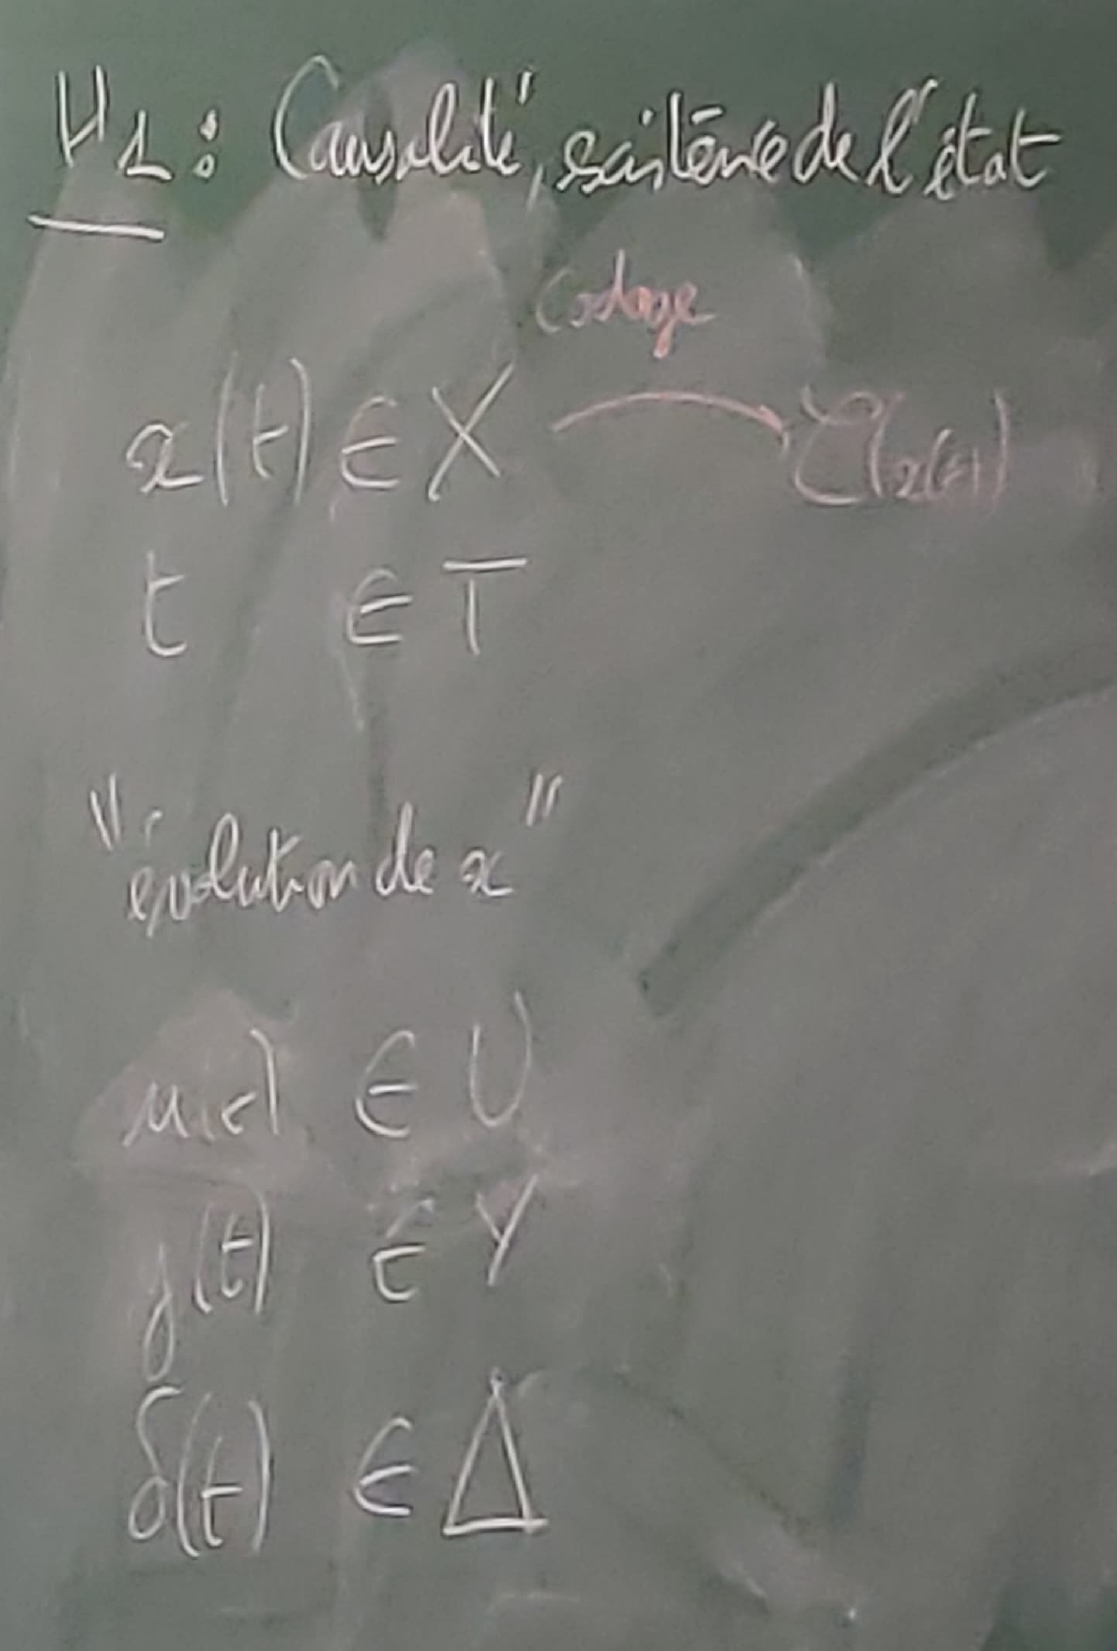 H1 : Causalité, existence de l'état
Codage
x(t) ∈ X → C(x(t))
t ∈ T
"évolution de x"
u(t) ∈ U
y(t) ∈ Y
δ(t) ∈ Δ